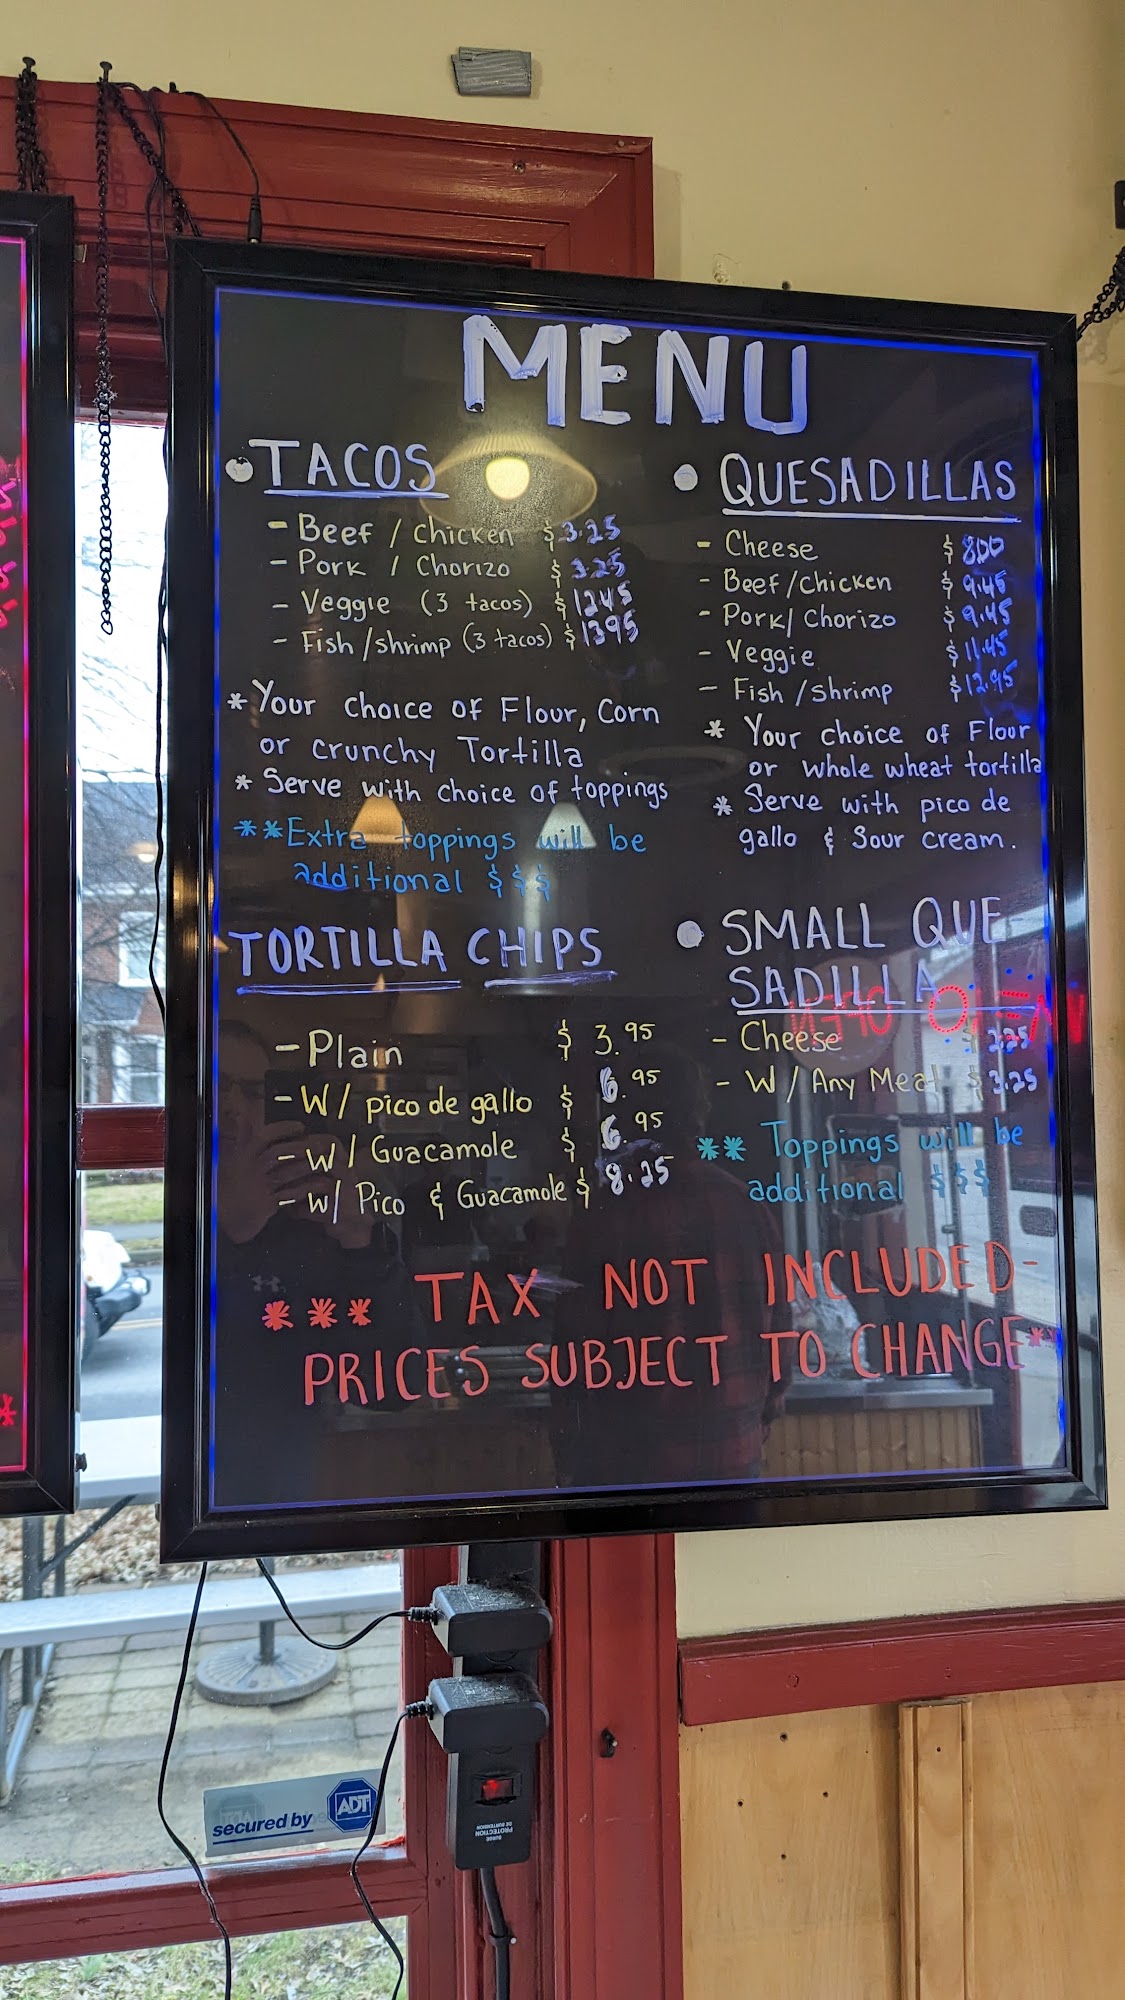 MENU
• TACOS
- Beef / Chicken $3.25
- Pork / Chorizo $3.25
- Veggie (3 tacos) $1245
- Fish/shrimp (3 tacos) $1395
* Your choice of Flour, Corn
or crunchy Tortilla
* Serve with choice of toppings
** Extra toppings will be
additional $$$
TORTILLA CHIPS
- Plain $3.95
- W/ pico de gallo $6.95
- W/ Guacamole $6.95
- W/ Pico & Guacamole $8.25
• QUESADILLAS
- Cheese $800
- Beef/Chicken $9.45
- Pork/Chorizo $9.45
- Veggie $11.45
- Fish/shrimp $12.95
* Your choice of Flour
or whole wheat tortilla
* Serve with pico de
gallo & Sour cream.
• SMALL QUE
SADILLA
- Cheese $2.25
- W/ Any Meat $3.25
** Toppings will be
additional $$$
*** TAX NOT INCLUDED-
PRICES SUBJECT TO CHANGE**
OPEN
secured by ADT
SURGE
PROTECTION